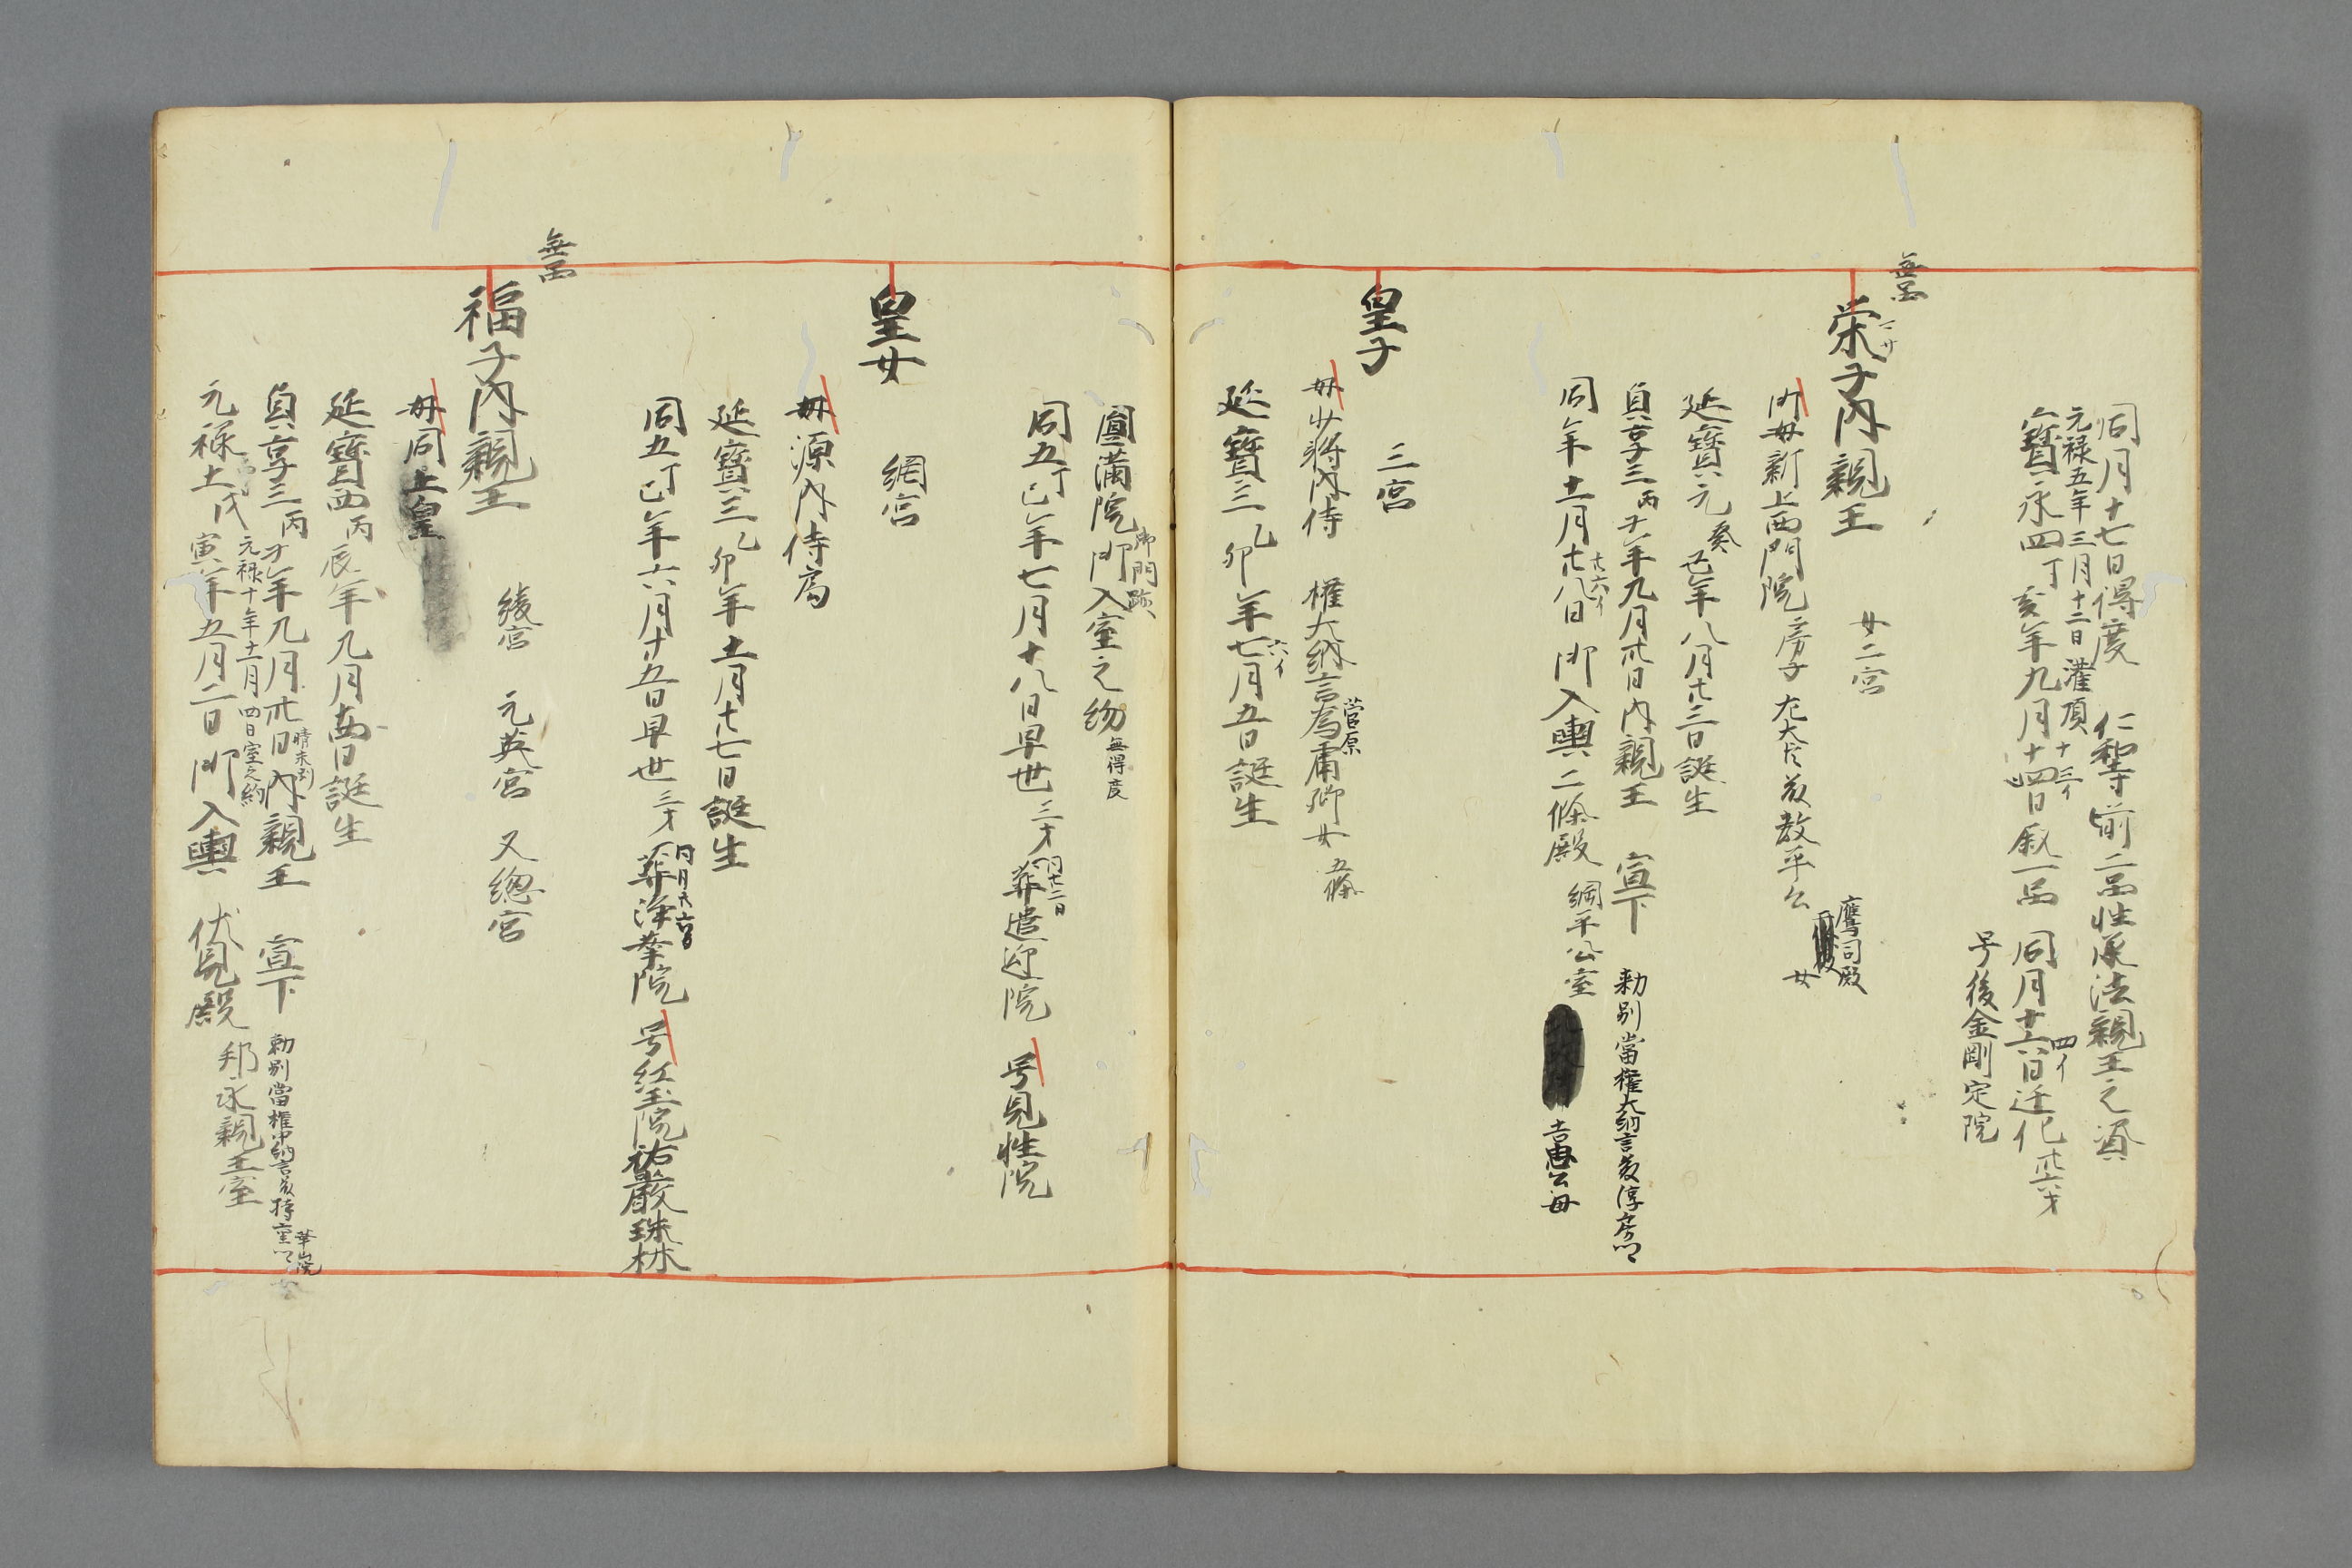 同月十七日得度　仁和寺前二品性承法親王之資
元禄五年三月十二日灌頂
寳永四丁亥年九月十四日叙一品　同月十六日迁化卅六才
十三イ
四イ
号後金剛定院
無品
栄子内親王　女二宮
御母新上西門院房子　左大臣教平公女
鷹司殿
延寳元癸丑年八月廿三日誕生
貞享三丙寅年九月廿日内親王　宣下　勅別當権大納言淳房
同年十二月廿八日　御入輿二條殿　綱平公室　吉忠公母
廿六イ
皇子　三宮
母少将内侍　権大納言為庸卿女　五條
菅原
延寳三乙卯年七月五日誕生
六イ
圓満院御入室之約　無得度
御門跡
同五丁巳年七月十八日早世三才　葬遣迎院　号見性院
皇女　網宮
母源内侍局
延寳三乙卯年十一月廿七日誕生
同五丁巳年六月廿五日早世三才　葬浄華院　号紅玉院祐巌珠林
無品
福子内親王　綾宮　元英宮　又總宮
母同上皇
延寳四丙辰年九月　日誕生
貞享三丙寅年九月廿日内親王　宣下　勅別當権中納言持重
華山院
元禄十年十一月四日室之約
元禄十一戊寅年五月二日　御入輿　伏見殿　邦永親王室